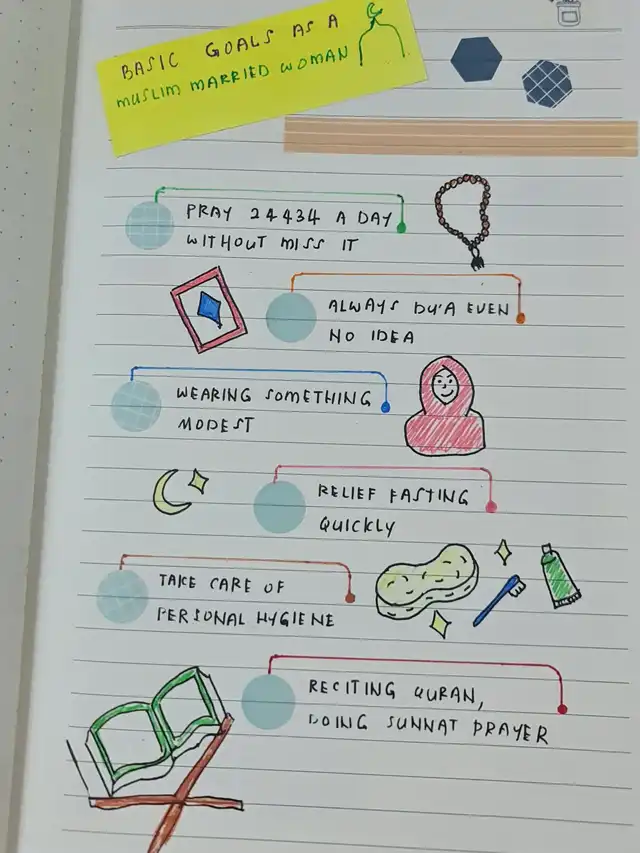 BASIC GOALS AS A
MUSLIM MARRIED WOMAN
PRAY 24434 A DAY
WITHOUT MISS IT
ALWAYS DU'A EVEN
NO IDEA
WEARING SOMETHING
MODEST
RELIEF FASTING
QUICKLY
TAKE CARE OF
PERSONAL HYGIENE
RECITING QURAN,
DOING SUNNAT PRAYER